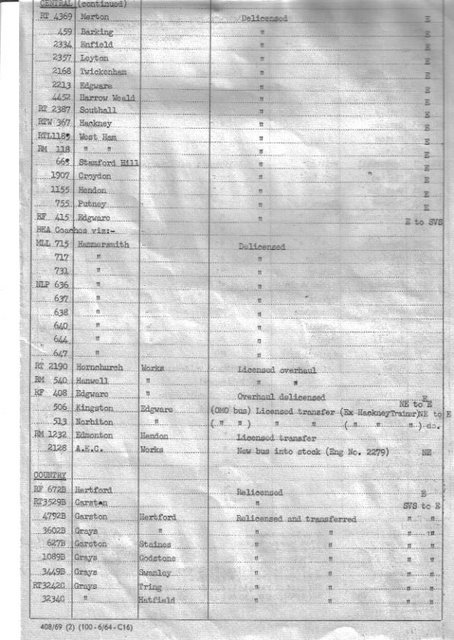 CENTRAL (continued)
RT 4369 Merton Delicensed E
459 Barking " E
2334 Enfield " E
2357 Leyton " E
2168 Twickenham " E
2213 Edgware " E
4452 Harrow Weald " E
RT 2387 Southall " E
RTW 367 Hackney " E
West Ham " E
RM 118 " " " E
Stamford Hill " E
1907 Croydon " " E
1155 Hendon " E
755 Putney " E
RF 415 Edgware " E to SVS
BEA Coaches viz:-
MLL 715 Hammersmith Delicensed
717 " "
731 " "
NLP 636 " "
637 " "
638 " "
640 " "
644 " "
647 " "
RT 2190 Hornchurch Works Licensed overhaul
RM 540 Hanwell " " "
RF 408 Edgware " Overhaul delicensed E
506 Kingston Edgware (OMO bus) Licensed transfer (Ex HackneyTrainer) NE to E
513 Norbiton " ( " " ) " ( " " ) do. NE to E
RM 1232 Edmonton Hendon Licensed transfer
2128 A.E.C. Works New bus into stock (Eng No. 2279) NE
COUNTRY
RF 672B Hertford Relicensed E
RT3529B Garston " SVS to E
4792B Garston Hertford Relicensed and transferred " "
3602B Grays " " " " "
627B Garston Staines " " " "
1089B Grays Godstone " " " "
3449B Grays Swanley " " " "
RT3242C Grays Tring " " " "
3234C " Hatfield " " " "
408/69 (2) (100-6/64-C16)